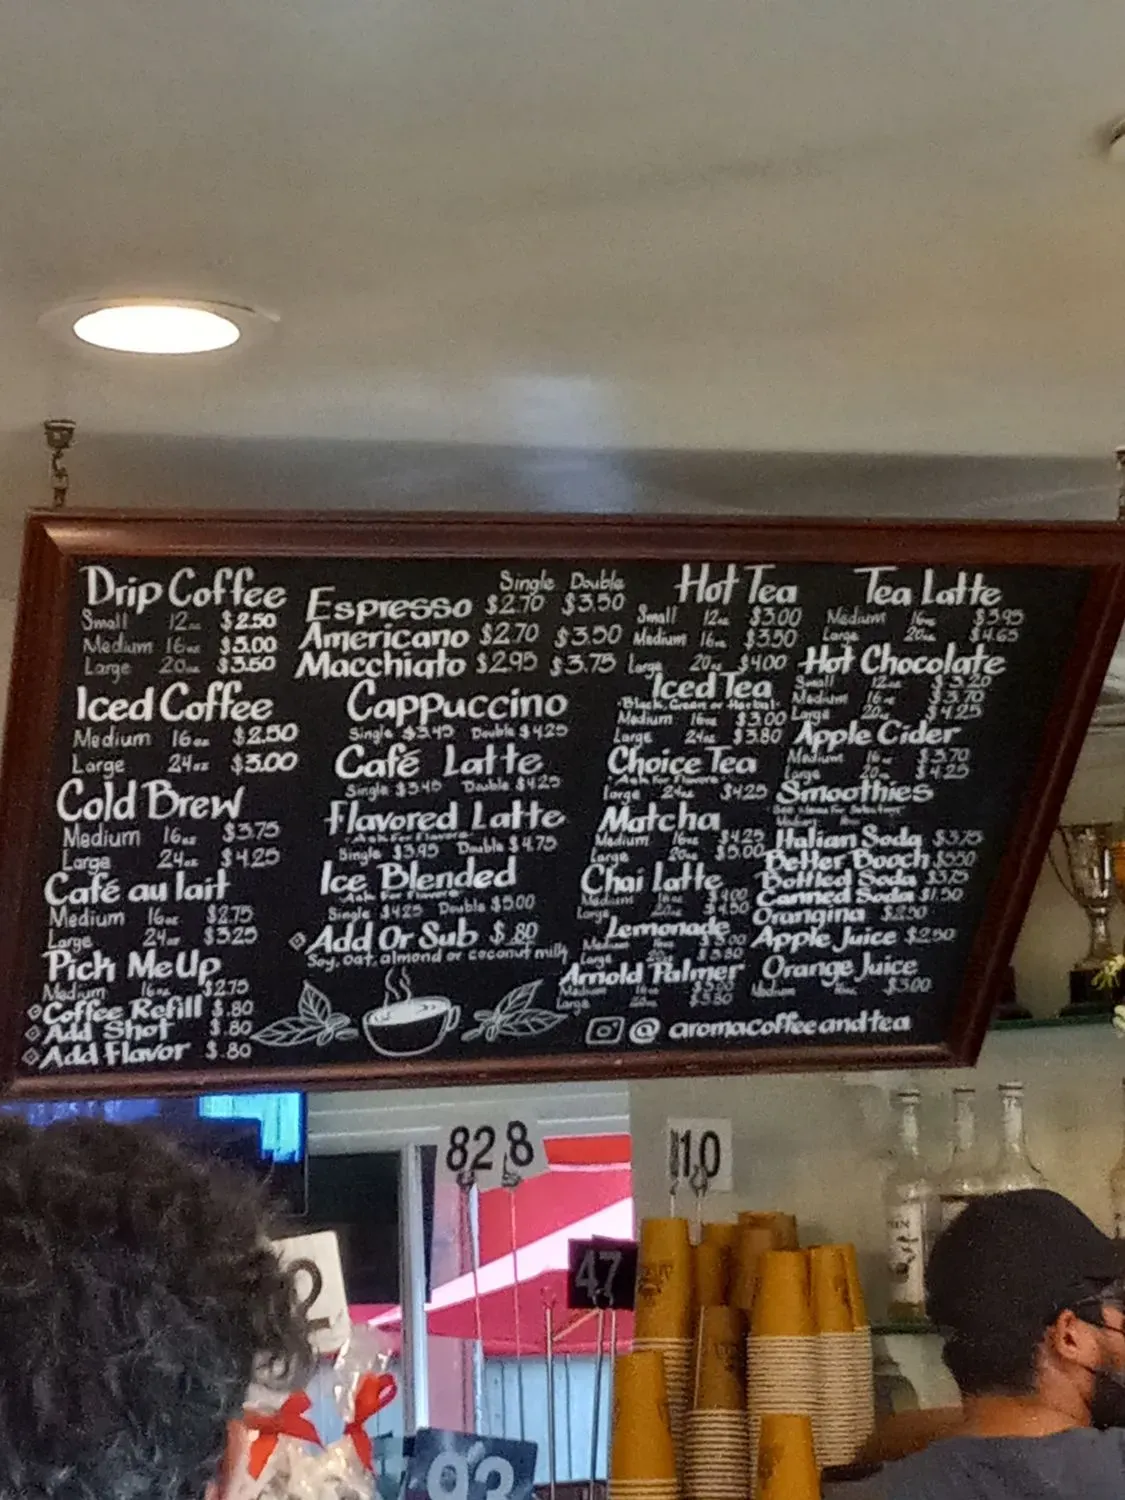 Drip Coffee
Small 12oz $2.50
Medium 16oz $3.00
Large 20oz $3.50
Iced Coffee
Medium 16oz $2.50
Large 24oz $3.00
Cold Brew
Medium 16oz $3.75
Large 24oz $4.25
Café au lait
Medium 16oz $2.75
Large 24oz $3.25
Pick Me Up
Medium 16oz $2.75
Coffee Refill $.80
Add Shot $.80
Add Flavor $.80
Single Double
Espresso $2.70 $3.50
Americano $2.70 $3.50
Macchiato $2.95 $3.75
Cappuccino
Single $3.45 Double $4.25
Café Latte
Single $3.45 Double $4.25
Flavored Latte
Ask For Flavors
Single $3.95 Double $4.75
Ice Blended
Ask For Flavors
Single $4.25 Double $5.00
Add Or Sub $.80
Soy, oat, almond or coconut milk
Hot Tea
Small 12oz $3.00
Medium 16oz $3.50
Large 20oz $4.00
Iced Tea
Black, Green or Herbal
Medium 16oz $3.00
Large 24oz $3.80
Choice Tea
Large 24oz $4.25
Matcha
Medium 16oz $4.25
Large 20oz $5.00
Chai Latte
Medium $4.00
Large $4.50
Lemonade
Medium 16oz $3.00
Large $3.80
Arnold Palmer
Medium
Large $3.80
Tea Latte
Medium 16oz $3.95
Large 20oz $4.65
Hot Chocolate
Small 12oz $3.20
Medium 16oz $3.70
Large 20oz $4.25
Apple Cider
Medium 16oz $3.70
Large 20oz $4.25
Smoothies
Italian Soda $3.75
Better Booch $5.50
Bottled Soda $3.75
Canned Soda $1.50
Orangina $2.50
Apple Juice $2.50
Orange Juice
Medium $3.00
@ aromacoffeeandtea
82
8
110
47
2
93